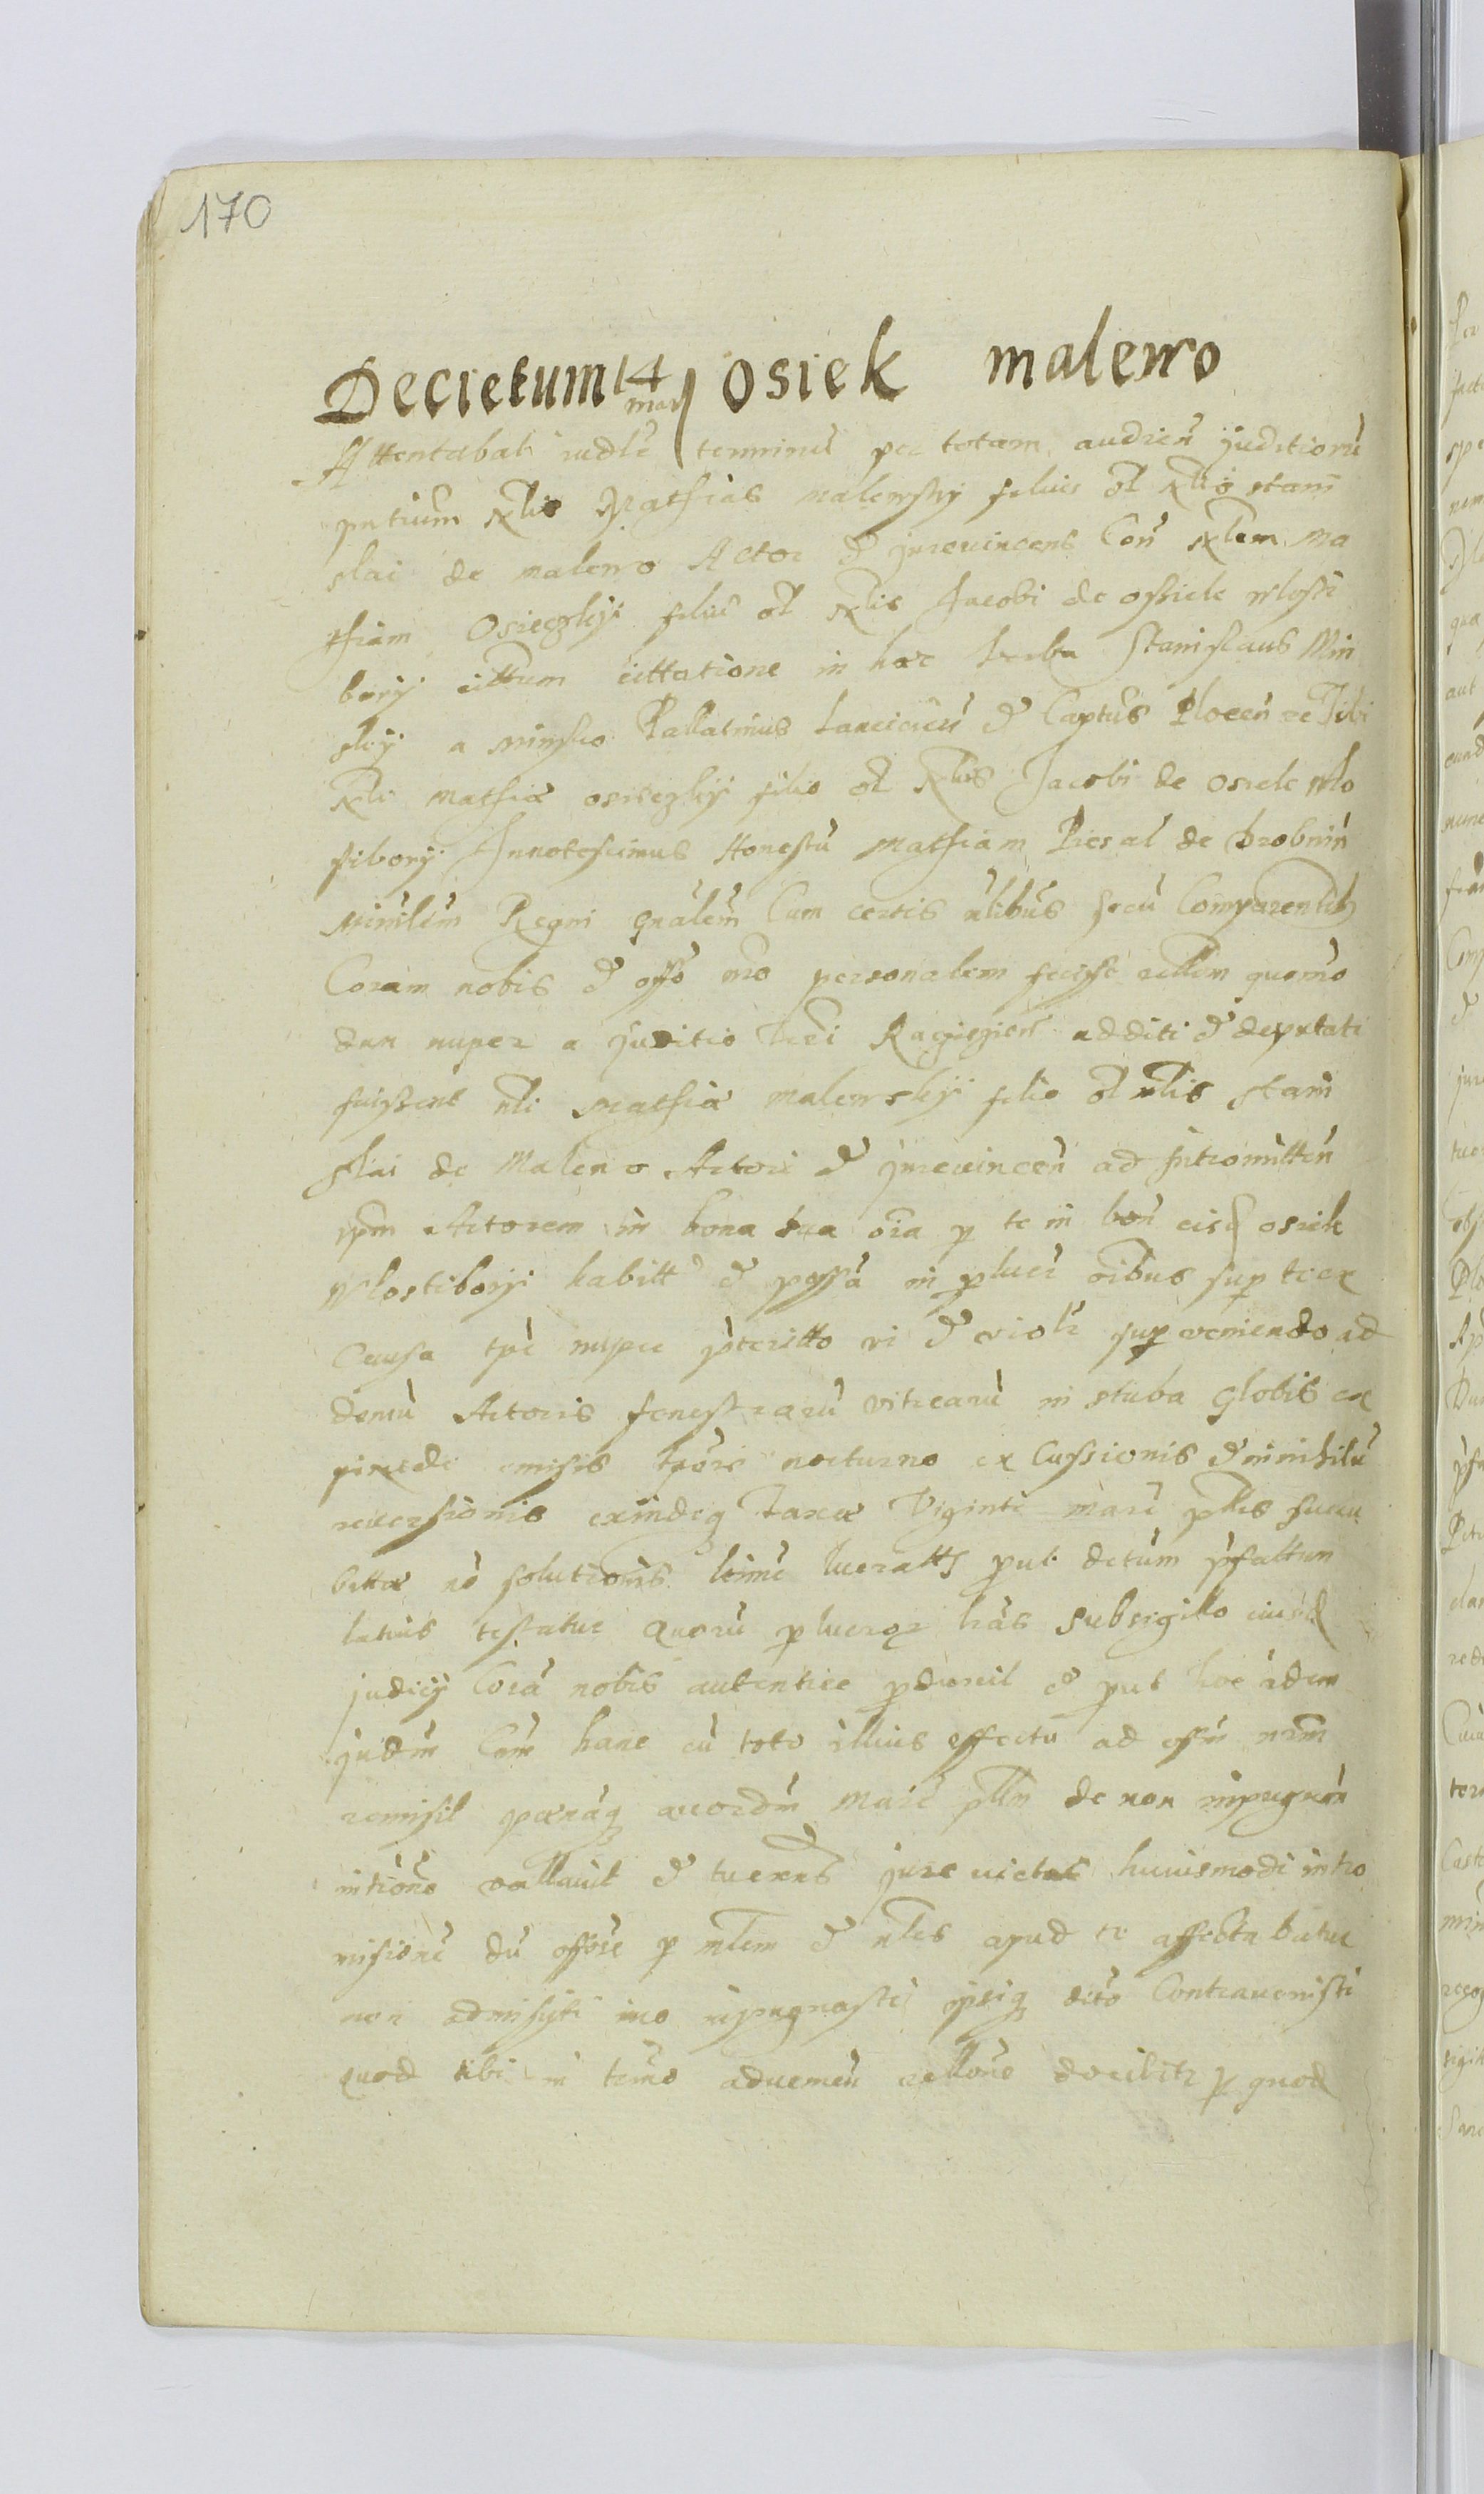 170
Decretum 14 mar Osiek malewo
Attentabat iudle terminus per totam audien juditioru
pntium Nlis Mathias malewsky filius ol Nlis stani
slai de malewo Actor & jurevincens Con Nlem Ma
thiam Osieczkÿ filiu ol Nlis Jacobi de ossiek wlosti
borÿ cittum cittatione in hoc verba Stanislaus Min
skÿ a minsko Pallatinus Lancicien & Captus Plocen re Tibi
Nli mathiæ osieczkÿ filio ol Nlis Jacobi de osiek wlo
stiborÿ Innotescimus Honestu Mathiam Piesal de Drobnin
Ministlem Regni gnalem Cum certis nlibus secu Comparentib
Coram nobis & offo nro personalem fecisse rellem quomo
dum nuper a juditio Tri Raczizien additi & deputati
fuissent nli Mathiæ malewskÿ filio ol nlis stani
slai de Malewo Actori & jurevincen ad intromitten
ipm Actorem in bona tua oia p te in bon eisd osiek
wlostiborÿ habitt & possa in p lucri oibus sup te ex
Causa tpe nuper pteritto vi & violr sup veniendo ad
domu Actoris fenestraru vitrearu in stuba globis ex
pixede emisis tpore nocturno ex Cussionis & in nihilu
reversionis exindeq taxæ Viginti marc plis succu
bittæ no solutionis lucratt prut dctum psattum
latius testatur quoru p lucror lras subsigillo eiusd
judicÿ Cora nobis autentice pduxit & prut hoc idem
judm Cam hanc cu toto illius effectu ad offm nrm
remisit pænaq marc de non inpugnan
intione vallavit & tu exns jure victus huiusmodi intro
misione du offose p mlem & nles apud te affecta batur
non admisisti imo inpugnasti ipsiq dcto Contravenisti
quod tibi in temo advenien rellone docebitr p quod